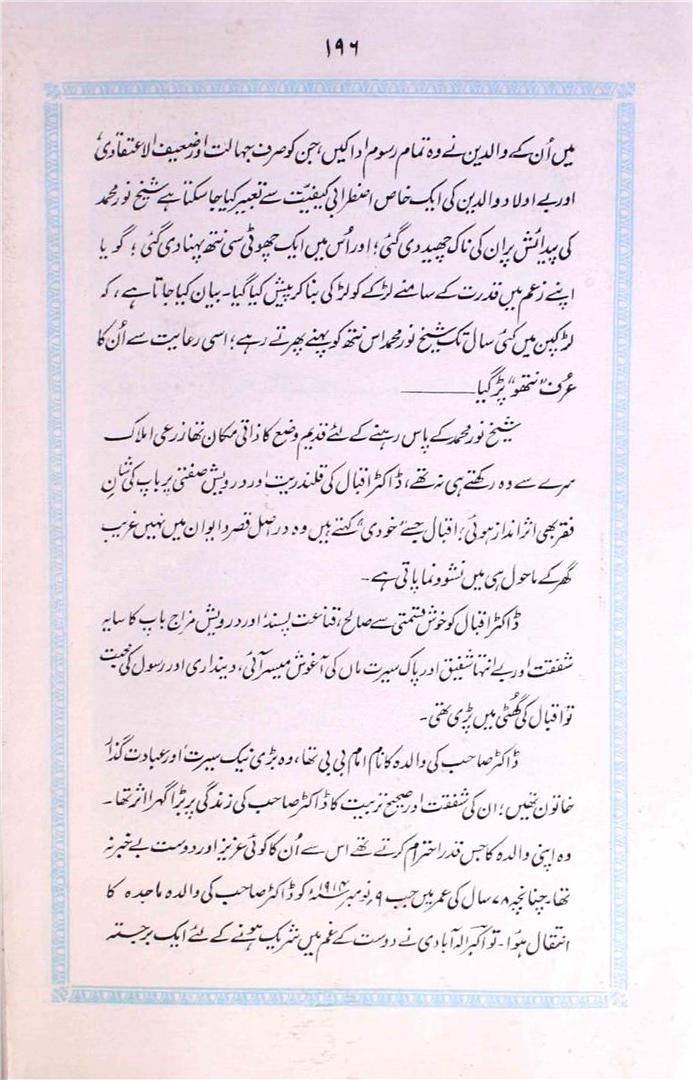 ۱۹۶
میں اُن کے والدین نے وہ تمام رسوم ادا کیں، جن کو صرف جہالت اور ضعیف الاعتقادی
اور بے اولاد والدین کی ایک خاص اضطرابی کیفیّت سے تعبیر کیا جا سکتا ہے شیخ نور محمد
کی پیدائش پر ان کی ناک چھید دی گئی؛ اور اُس میں ایک چھوٹی سی نتھ پہنا دی گئی؛ گویا
اپنے زعم میں قدرت کے سامنے لڑکے کو لڑکی بنا کر پیش کیا گیا۔ بیان کیا جاتا ہے، کہ
لڑکپن میں کئی سال تک شیخ نور محمد اس نتھ کو پہنے پھرتے رہے؛ اسی رعایت سے اُن کا
عرف "نتھو" پڑ گیا ــــــــــ
شیخ نور محمد کے پاس رہنے کے لئے قدیم وضع کا ذاتی مکان تھا زرعی املاک
سرے سے وہ رکھتے ہی نہ تھے، ڈاکٹر اقبال کی قلندریت اور درویش صفتی پر باپ کی شانِ
فقر بھی اثر انداز ہوئی؛ اقبال جسے "خودی" کہتے ہیں وہ در اصل قصر و ایوان میں نہیں غریب
گھر کے ماحول ہی میں نشو و نما پاتی ہے۔
ڈاکٹر اقبال کو خوش قسمتی سے صالح، قناعت پسند اور درویش مزاج باپ کا سایہ
شفقت اور بے انتہا شفیق اور پاک سیرت ماں کی آغوش میسر آئی، دینداری اور رسول کی محبت
تو اقبال کی گھُٹی میں پڑی تھی۔
ڈاکٹر صاحب کی والدہ کا نام امام بی بی تھا، وہ بڑی نیک سیرت اور عبادت گذار
خاتون تھیں؛ ان کی شفقت اور صحیح تربیت کا ڈاکٹر صاحب کی زندگی پر بڑا گہرا اثر تھا۔
وہ اپنی والدہ کا جس قدر احترام کرتے تھے اس سے اُن کا کوئی عزیز اور دوست بے خبر نہ
تھا۔ چنانچہ ۷۸ سال کی عمر میں جب ۹ر نومبر ۱۹۱۴ء کو ڈاکٹر صاحب کی والدہ ماجدہ کا
انتقال ہوُا۔ تو اکبر الہ آبادی نے دوست کے غم میں شریک ہونے کے لئے ایک برجستہ